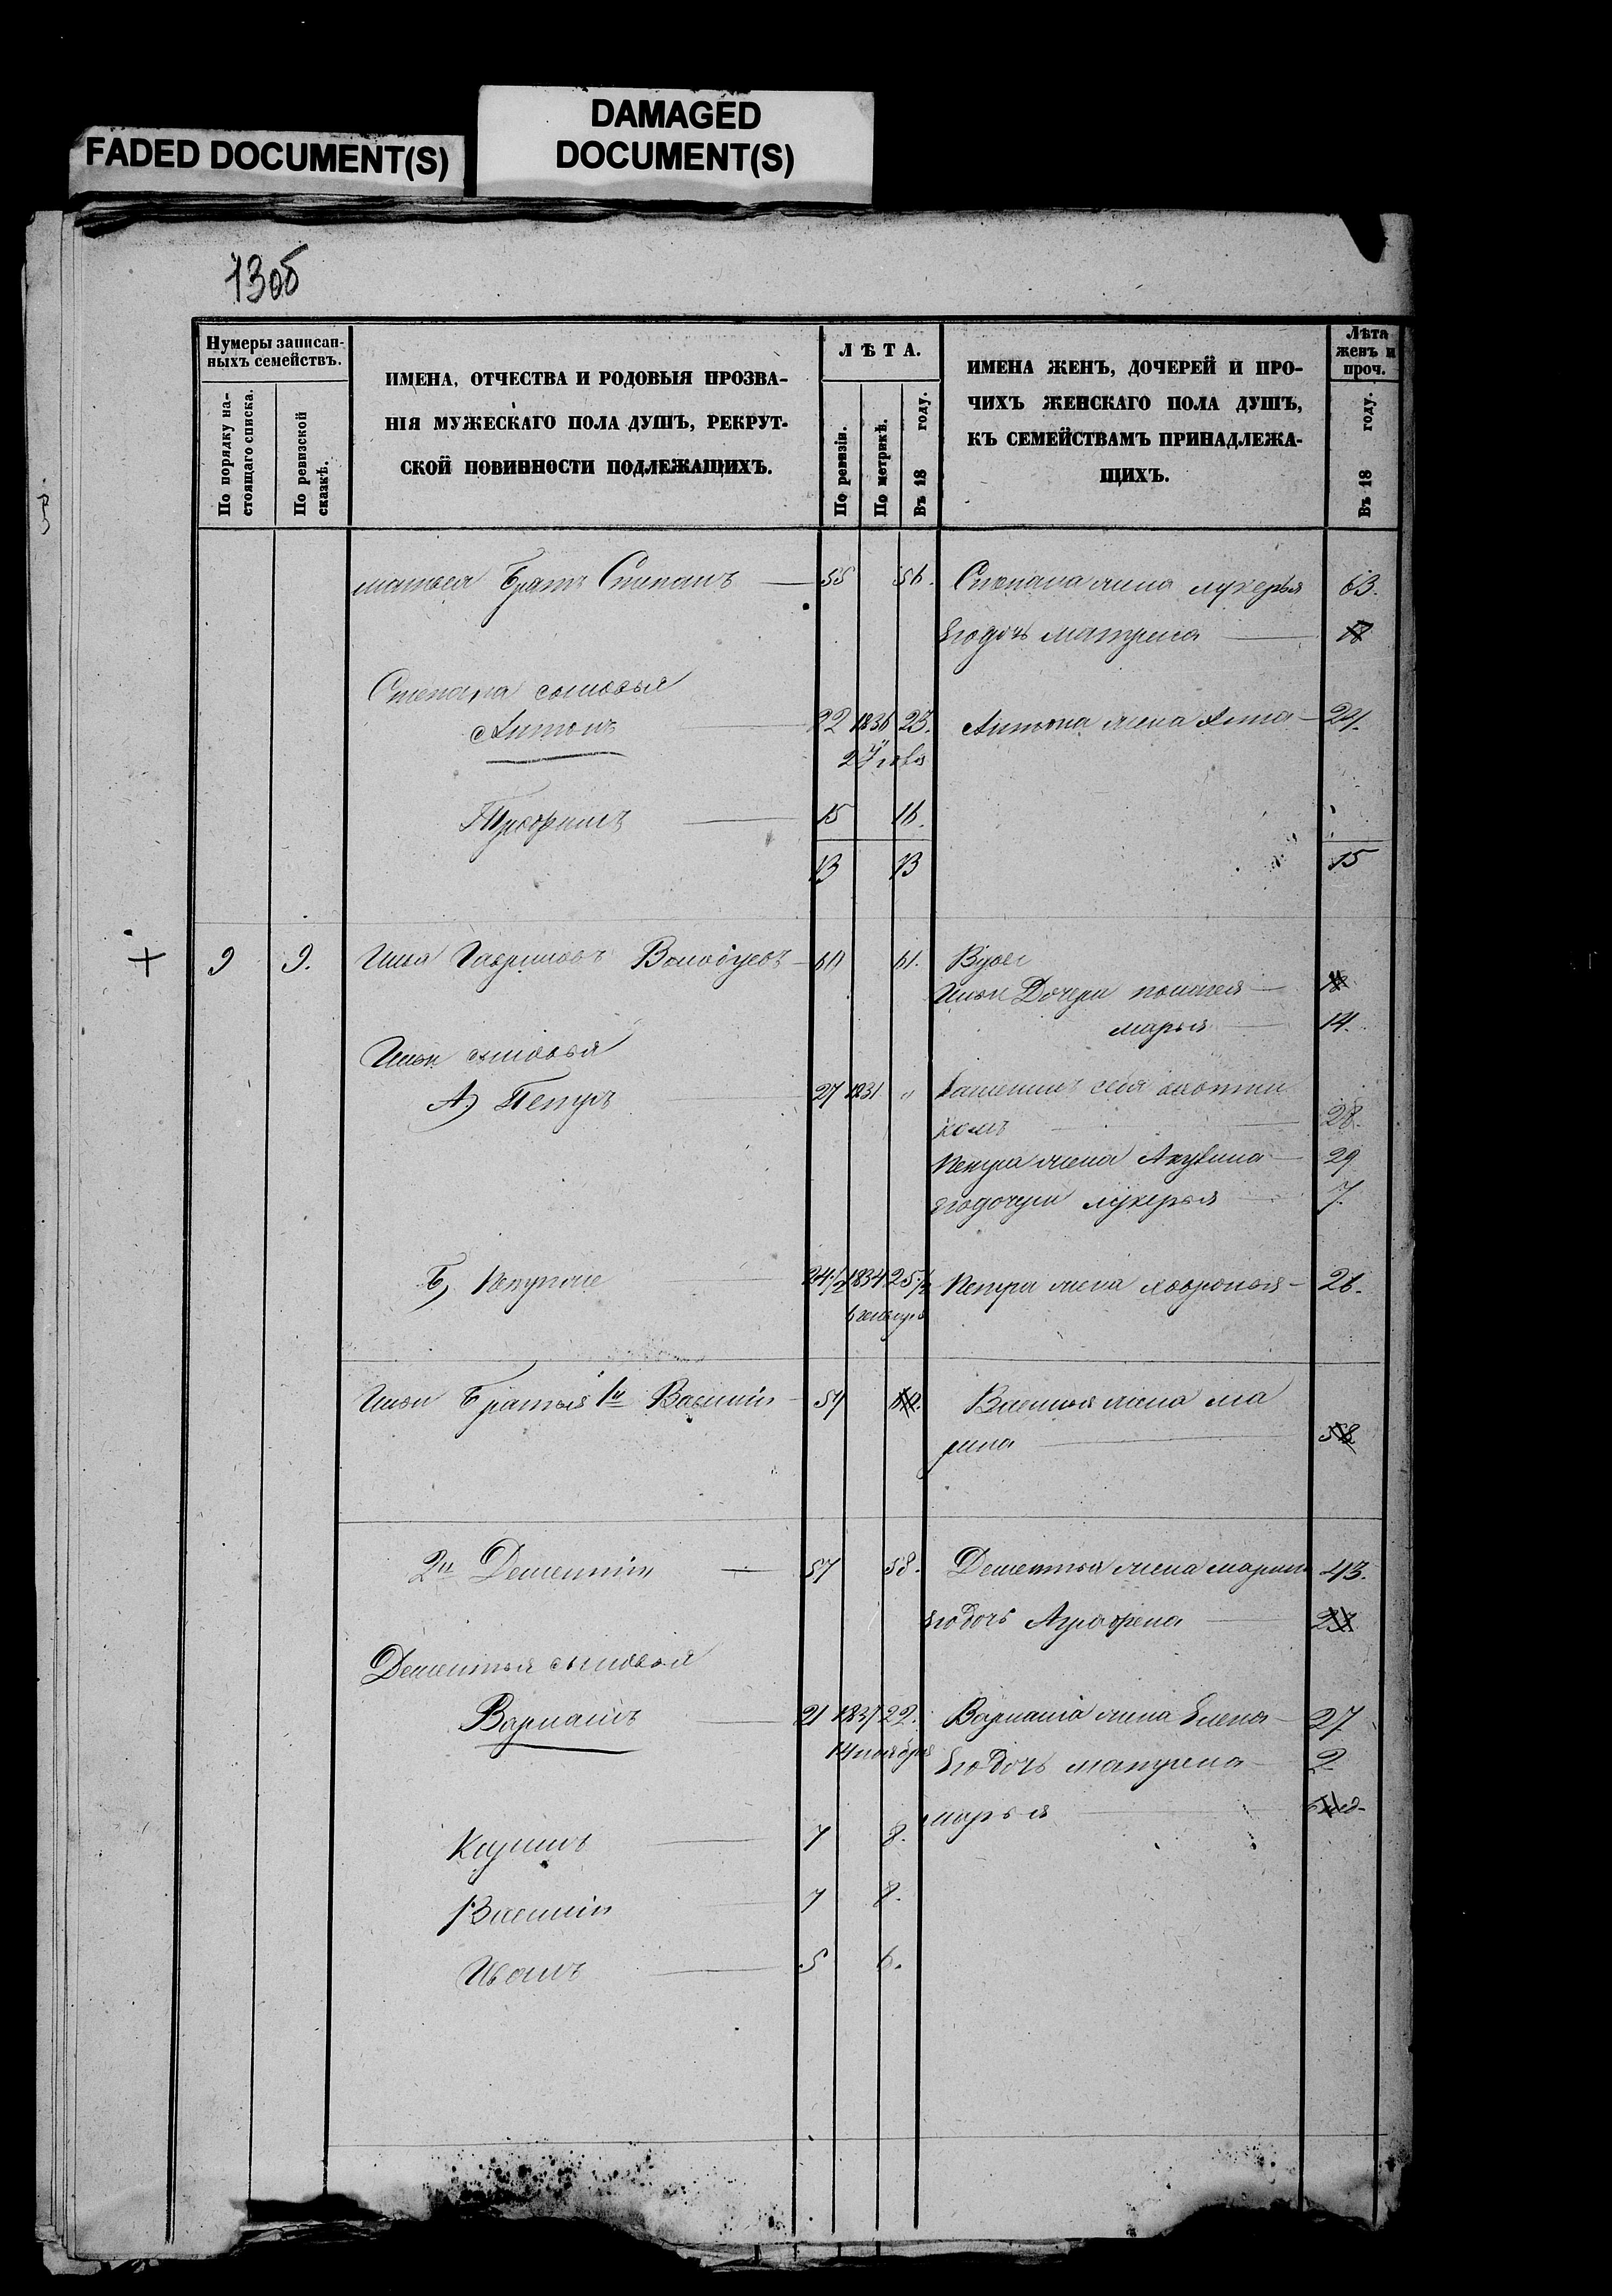 FADED DOCUMENT(S)
DAMAGED
DOCUMENT(S)
130б
Нумеры записан-
ныхъ семействъ.
По порядку на-
стоящаго списка.
По ревизской
сказкѣ.
ИМЕНА, ОТЧЕСТВА И РОДОВЫЯ ПРОЗВА-
НІЯ МУЖЕСКАГО ПОЛА ДУШЪ, РЕКРУТ-
СКОЙ ПОВИННОСТИ ПОДЛЕЖАЩИХЪ.
ЛѢТА.
По ревизіи.
По метрикѣ.
Въ 18 году.
ИМЕНА ЖЕНЪ, ДОЧЕРЕЙ И ПРО-
ЧИХЪ ЖЕНСКАГО ПОЛА ДУШЪ,
КЪ СЕМЕЙСТВАМЪ ПРИНАДЛЕЖА-
ЩИХЪ.
Лѣта
женъ и
проч.
Въ 18 году.
Братъ Степанъ 55 56. Степана жена лукерья 63.
Его дочь матрена 18
Степана сыновья
Антонъ 22 1836 23. Антона жена Анна 24.
27
Трофимъ 15 16.
13 13 15
9 9. Илья Гавриловъ 60 61. Вдовъ
Ильи Дочери 18
марья 14.
Ильи сыновья
А) Петръ 27 1831 " себя охотни
комъ 28.
Петра жена Акулина 29
его дочери лукерья 7.
Б) 24 1/2 1834 25 1/2 Петра жена 26.
Ильи Братья 1й Василій 59 60. Василья жена ма
рина 58
2й Дементій 57 58. Дементья жена 43.
его дочь Аграфена 23
Дементья сыновья
Варламъ 21 1837 22. Варлама жена Елена 27
14 ноября Его дочь матрена 2
марья
7 8.
Василій 7 8.
Иванъ 5 6.